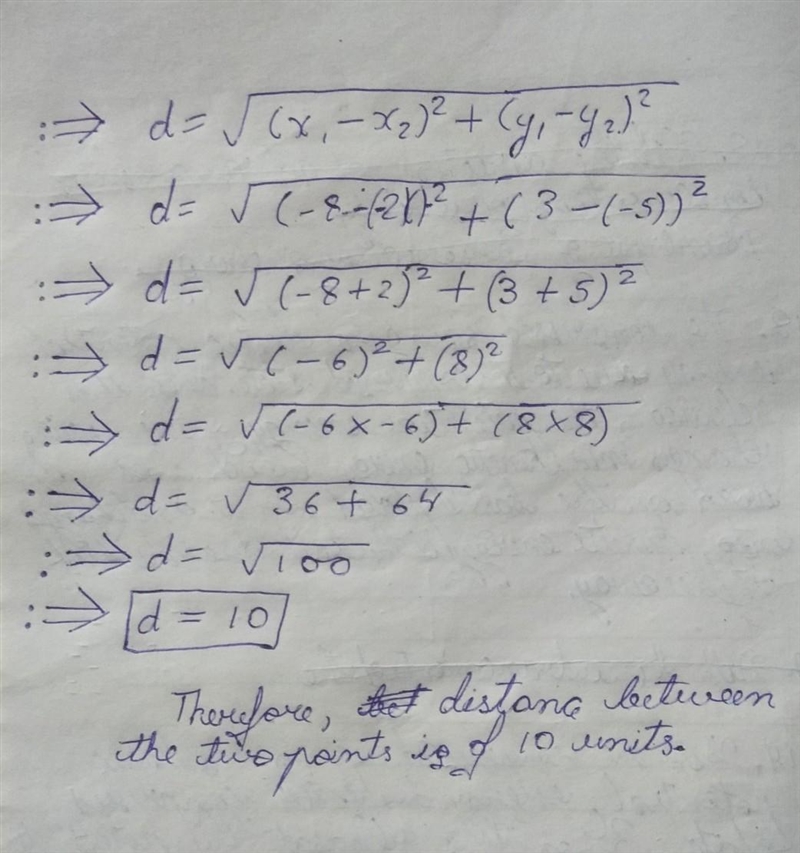 :⇒ d = √(x₁ - x₂)² + (y₁ - y₂)²
:⇒ d = √(-8 - (-2))² + (3 - (-5))²
:⇒ d = √(-8 + 2)² + (3 + 5)²
:⇒ d = √(-6)² + (8)²
:⇒ d = √(-6 × -6) + (8 × 8)
:⇒ d = √36 + 64
:⇒ d = √100
:⇒ d = 10
Therefore, distance between
the two points is of 10 units.